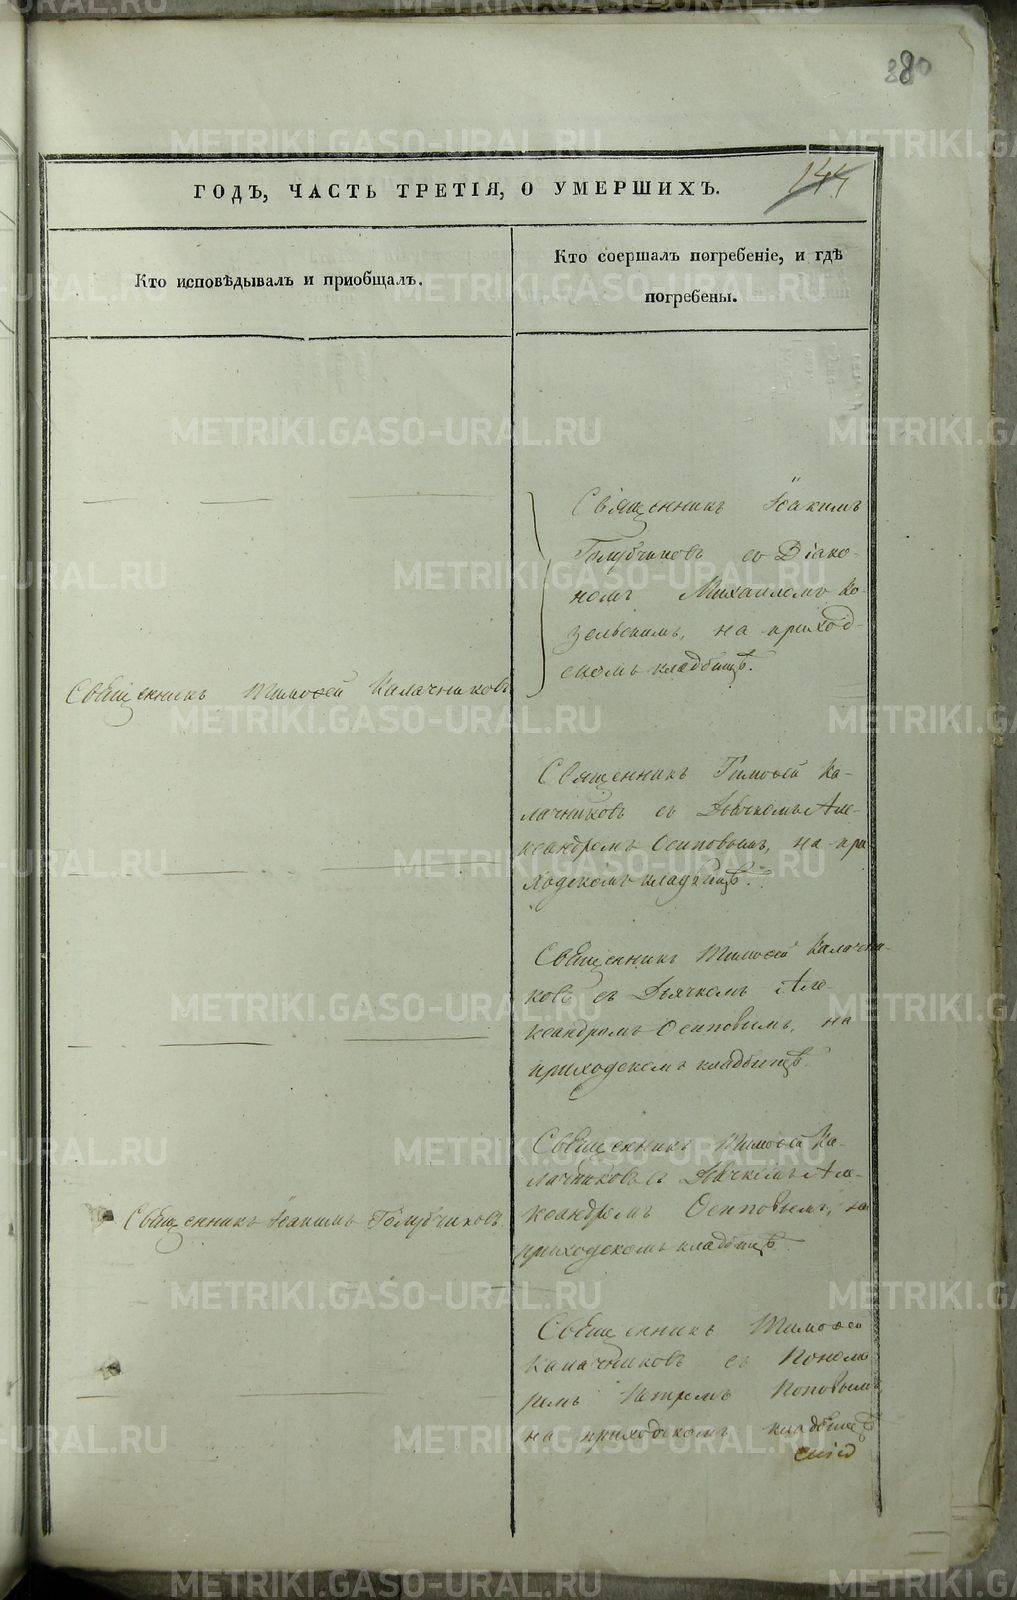 280
144
ГОДЪ, ЧАСТЬ ТРЕТІЯ, О УМЕРШИХЪ.
Кто исповѣдывалъ и приобщалъ.
Кто соершалъ погребеніе, и гдѣ
погребены.
Священникъ Іоакимъ
Голубчиковъ со Діако-
номъ Михаиломъ Ко-
зельскимъ, на приход-
скомъ кладбищѣ.
Священникъ Тимофей Калачниковъ
Священникъ Тимофей Ка-
лачниковъ съ Дьячкомъ Але-
ксандромъ Осиповымъ, на при-
ходскомъ кладбищѣ.
Священникъ Тимофей Калачни-
ковъ съ Дьячкомъ Але-
ксандромъ Осиповымъ, на
приходскомъ кладбищѣ.
Священникъ Тимофей Ка-
лачниковъ съ Дьячкомъ Але-
ксандромъ Осиповымъ, на
приходскомъ кладбищѣ.
Священникъ Іоакимъ Голубчиковъ.
Священникъ Тимофей
Калачниковъ съ Понома-
ремъ Петромъ Поповымъ,
на приходскомъ кладбищѣ
METRIKI.GASO-URAL.RU